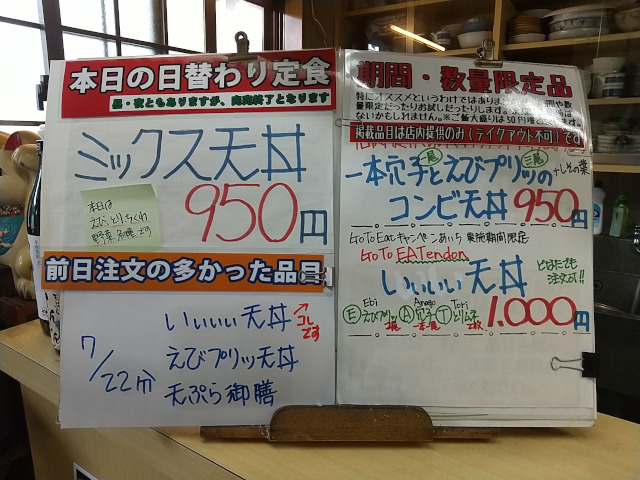 本日の日替わり定食
昼・夜ともありますが、完売終了となります
ミックス天丼
950円
本日は
えび、とり、ちくわ
野菜
です
前日注文の多かった品目
いいいい天丼
コレです
7/22分
えびプリッ天丼
天ぷら御膳
期間・数量限定品
特にオススメというわけではありま
量限定だったりお試しだったりします。
ないかもしれません。※ご飯大盛りは50円増
掲載品目は店内提供のみ(テイクアウト不可)です
一本穴子とえびプリッの
+しその葉
コンビ天丼 950円
GoTo Eatキャンペーンあいち 実施期間限定
GoTo EATendon
いいいい天丼
どなたでも
注文可!!
Ebi Anago Tori
Ⓔえびプリッ Ⓐ穴子 Ⓣとりム子
2尾 一本 2枚
1.000円